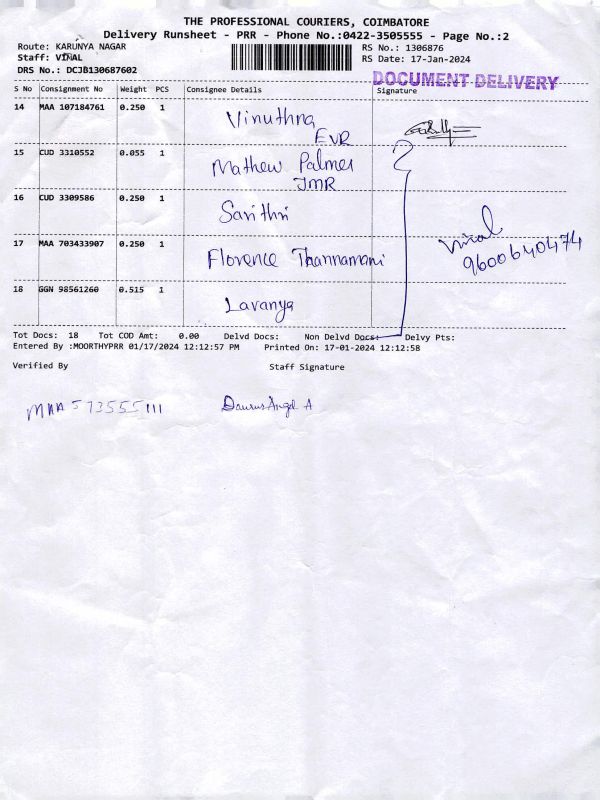 THE PROFESSIONAL COURIERS, COIMBATORE
Delivery Runsheet - PRR - Phone No.:0422-3505555 - Page No.:2
Route: KARUNYA NAGAR
RS No.: 1306876
Staff: VIMAL
RS Date: 17-Jan-2024
DRS No.: DCJB130687602
DOCUMENT DELIVERY
S No Consignment No Weight PCS Consignee Details Signature
14 MAA 107184761 0.250 1 Vinuthna
EVR
15 CUD 3310552 0.055 1 Mathew Palmer
JMR
16 CUD 3309586 0.250 1 Savithri
17 MAA 703433907 0.250 1 Florence Thannamani
Vimal
9600640474
18 GGN 98561260 0.515 1 Lavanya
Tot Docs: 18 Tot COD Amt: 0.00 Delvd Docs: Non Delvd Docs: Delvy Pts:
Entered By :MOORTHYPRR 01/17/2024 12:12:57 PM Printed On: 17-01-2024 12:12:58
Verified By Staff Signature
MAA 573555111 Angel A